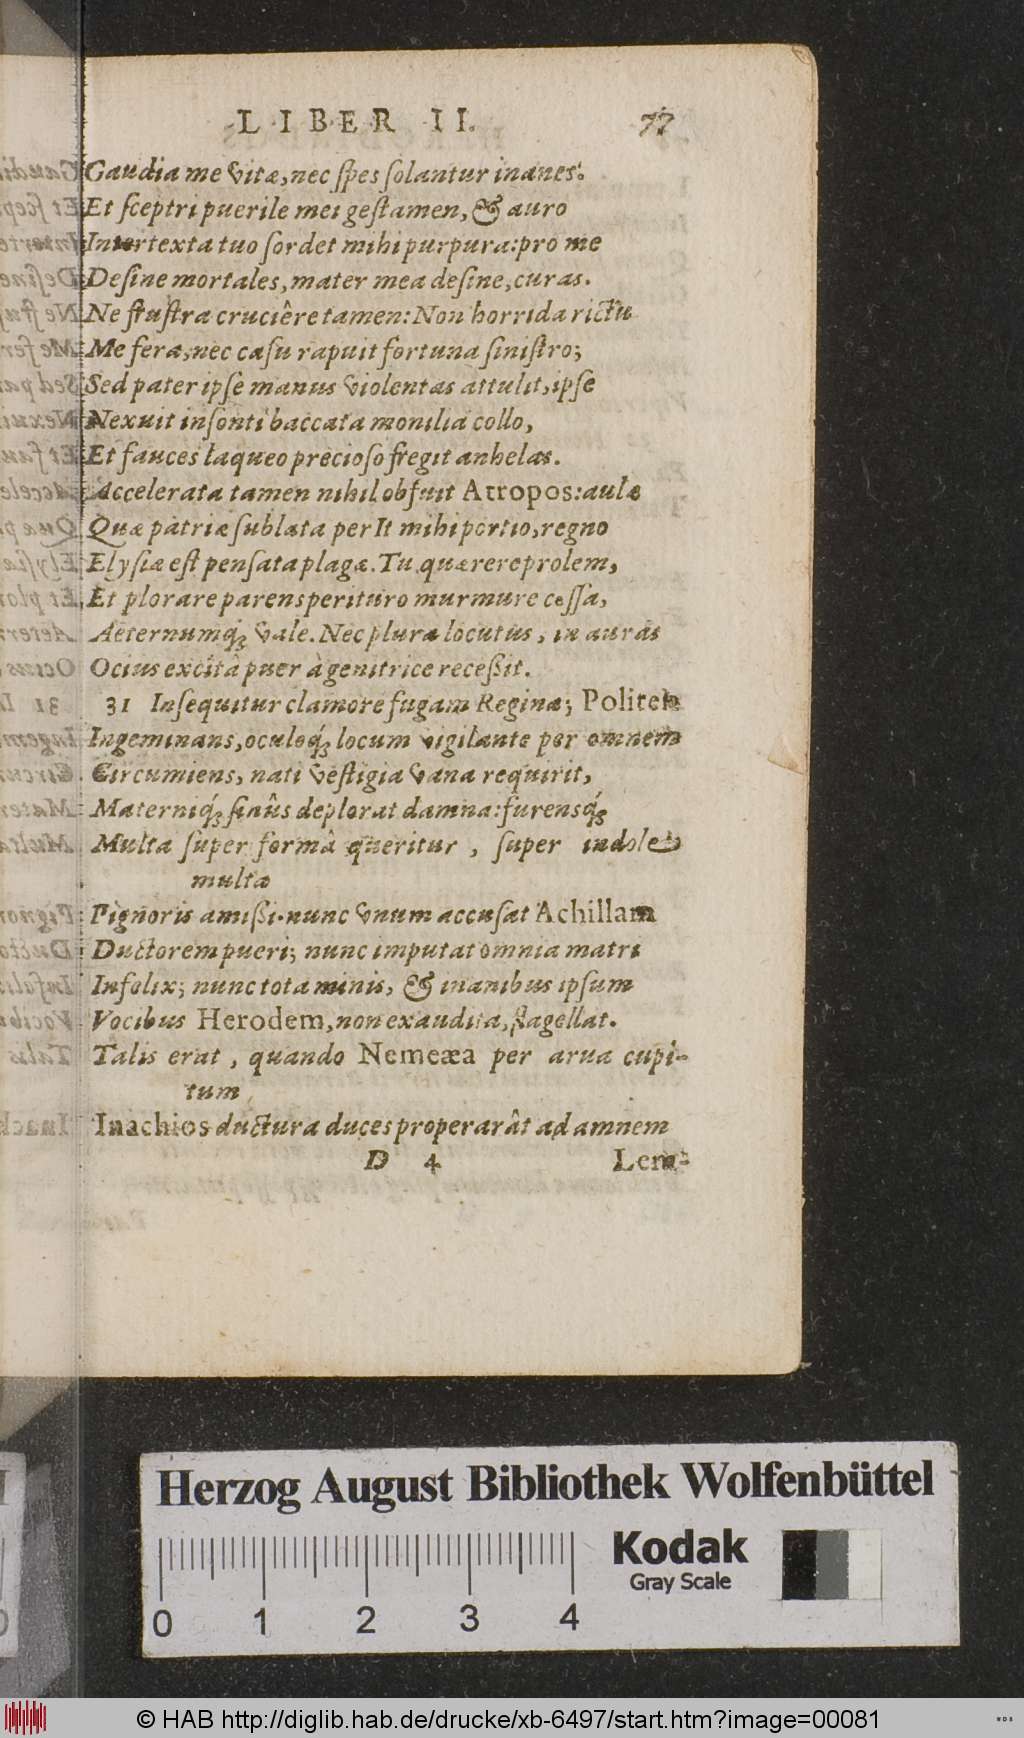 LIBER II. 77
Gaudia me vitæ, nec ſpes ſolantur inanes.
Et ſceptri puerile mei geſtamen, & auro
Intertexta tuo ſordet mihi purpura: pro me
Deſine mortales, mater mea deſine, curas.
Ne fruſtra cruciêre tamen: Non horrida rictu
Me fera, nec caſu rapuit fortuna ſiniſtro;
Sed pater ipſe manus violentas attulit, ipſe
Nexuit inſonti baccata monilia collo,
Et fauces laqueo precioſo fregit anhelas.
Accelerata tamen nihil obfuit Atropos: aulæ
Quæ patriæ ſublata perIt mihi portio, regno
Elyſiæ eſt penſata plagæ. Tu quærere prolem,
Et plorare parens perituro murmure ceſſa,
Aeternumq́ꝫ vale. Nec plura locutus, in auras
Ocius excitâ puer à genitrice receßit.
31 Inſequitur clamore fugam Reginæ; Politen
Ingeminans, oculoq́ꝫ locum vigilante per omnem
Circumiens, nati veſtigia vana requirit,
Materniq́ꝫ ſinûs deplorat damna: furensq́ꝫ
Multa ſuper formâ queritur, ſuper indole
multa
Pignoris amißi. nunc vnum accuſat Achillam
Ductorem pueri; nunc imputat omnia matri
Infelix; nunc tota minis, & inanibus ipſum
Vocibus Herodem, non exaudita, flagellat.
Talis erat, quando Nemeæa per arua cupi-
tum
Inachios ductura duces properarât ad amnem
D 4 Lem-
Herzog August Bibliothek Wolfenbüttel
Kodak
Gray Scale
0 1 2 3 4
© HAB http://diglib.hab.de/drucke/xb-6497/start.htm?image=00081